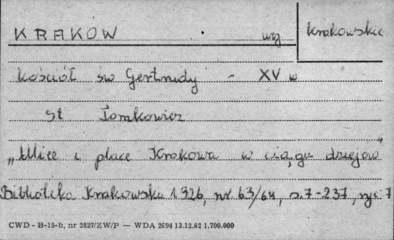 KRAKÓW woj krakowskie
kościół św Gertrudy - XV w
St Tomkowicz
"Ulice i place Krakowa w ciągu dziejów"
Biblioteka Krakowska 1926, nr 63/64, s. 7-237, ryc 7
CWD - B-15-b, nr 2827/ZW/P — WDA 2694 13.12.62 1.700.000